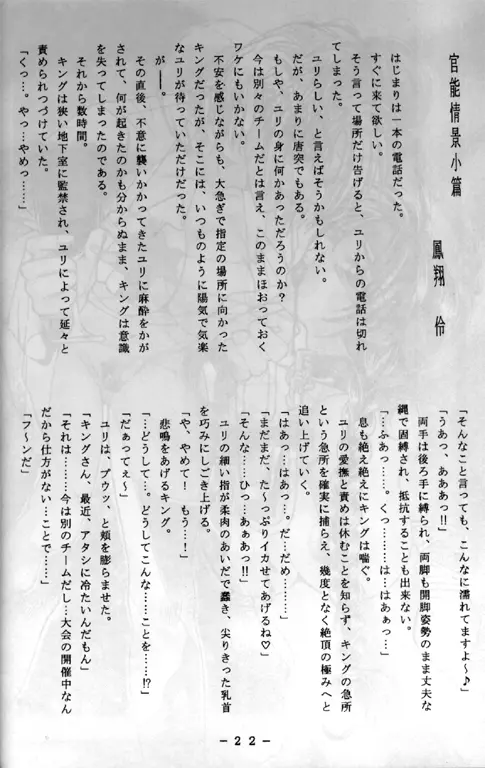 官能情景小篇
鳳翔　伶
はじまりは一本の電話だった。
すぐに来て欲しい。
そう言って場所だけ告げると、ユリからの電話は切れ
てしまった。
ユリらしい、と言えばそうかもしれない。
だが、あまりに唐突でもある。
もしや、ユリの身に何かあっただろうのか？
今は別々のチームだとは言え、このままほおっておく
ワケにもいかない。
不安を感じながらも、大急ぎで指定の場所に向かった
キングだったが、そこには、いつものように陽気で気楽
なユリが待っていただけだった。
が――。
その直後、不意に襲いかかってきたユリに麻酔をかが
されて、何が起きたのかも分からぬまま、キングは意識
を失ってしまったのである。
それから数時間。
キングは狭い地下室に監禁され、ユリによって延々と
責められつづけていた。
「くっ…。やっ…やめっ……」
「そんなこと言っても、こんなに濡れてますよ～♪」
「うあっ、あああっ!!」
両手は後ろ手に縛られ、両脚も開脚姿勢のまま丈夫な
縄で固縛され、抵抗することも出来ない。
「…ふあっ…。くっ………は…はあぁっ…」
息も絶え絶えにキングは喘ぐ。
ユリの愛撫と責めは休むことを知らず、キングの急所
という急所を確実に捕らえ、幾度となく絶頂の極みへと
追い上げていく。
「はあっ…はあっ…。だ…だめ………」
「まだまだ、た～っぷりイカせてあげるね♡」
「そんな……ひっ…あぁあっ!!」
ユリの細い指が柔肉のあいだで蠢き、尖りきった乳首
を巧みにしごき上げる。
「や、やめて！　もう…！」
悲鳴をあげるキング。
「…どうして…。どうしてこんな……ことを……!?
「だぁってぇ～」
ユリは、プウッ、と頬を膨らませた。
「キングさん、最近、アタシに冷たいんだもん」
「それは………今は別のチームだし…大会の開催中なん
だから仕方がない…ことで……」
「フ～ンだ」
－２２－